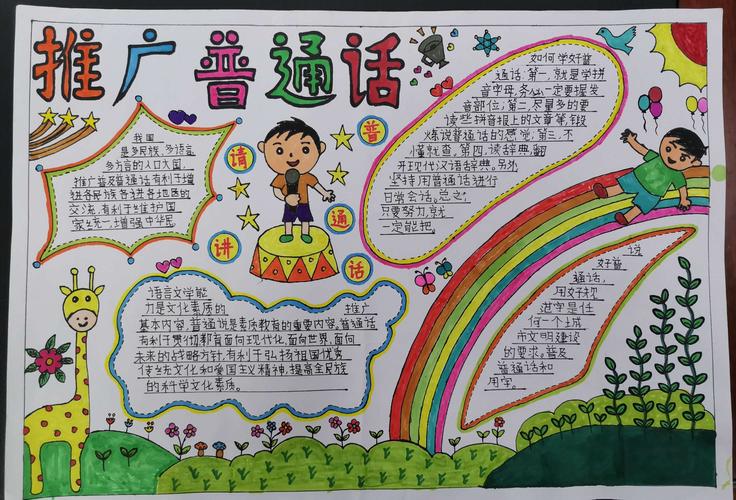 推广普通话
请讲普通话
我国
是多民族、多语言、
多方言的人口大国,
推广普及普通话有利于增
进各民族各进各地区的
交流,有利于维护国
家统一,增强中华民
如何学好普
通话,第一,就是学拼
音字母,务必一定要握发
音部位;第二,尽量多的要
读些拼音报上的文章笔段
炼说普通话的感觉,第三,不
懂就查,第四,读辞典,翻
开现代汉语辞典。另外
坚持用普通话进行
日常会话。总之,
只要努力,就
一定能把
语言文学能
力是文化素质的 推广
基本内容,普通说是素质教育的重要内容,普通话
有利于贯彻教育面向现代化,面向世界,面向
未来的战略方针,有利于弘扬祖国优秀
传统文化和爱国主义精神,提高全民族
的科学文化素质。
说
好普
通话,
用好规
范字是任
何一个土成
市文明建设
的要求。普及
普通话和
用字。